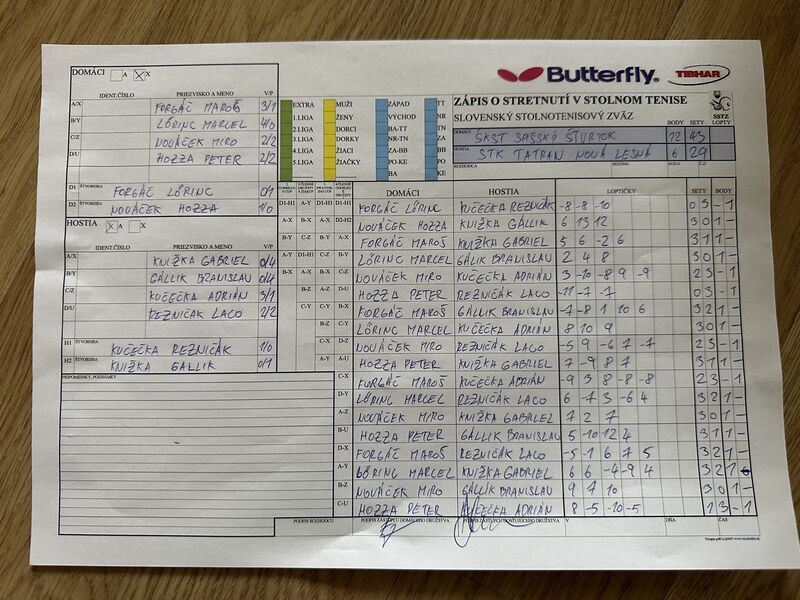 DOMÁCI A X
Butterfly. TIBHAR
IDENT.ČÍSLO PRIEZVISKO A MENO V/P
ZÁPIS O STRETNUTÍ V STOLNOM TENISE
SLOVENSKÝ STOLNOTENISOVÝ ZVÄZ
SSTZ
BODY SETY LOPTY
DOMÁCI ŠKST SPIŠSKÝ ŠTVRTOK 12 43
HOSTIA STK TATRAN NOVÁ LESNÁ 6 29
ROZHODCA KOLO Č.Z.
A/X FORGÁČ MAROŠ 3/1
B/Y LÖRINC MARCEL 4/0
C/Z NOVÁČEK MIRO 2/2
D/U HOZZA PETER 2/2
D1 ŠTVORHRA FORGÁČ LÖRINC 0/1
D2 NOVÁČEK HOZZA 1/0
EXTRA MUŽI ZÁPAD TT
1.LIGA ŽENY VÝCHOD NR
2.LIGA DORCI BA-TT TN
3.LIGA DORKY NR-TN ZA
4.LIGA ŽIACI ZA-BB BB
5.LIGA ŽIAČKY PO-KE PO
BA KE
HOSTIA A X
IDENT.ČÍSLO PRIEZVISKO A MENO V/P
A/X KNIŽKA GABRIEL 0/4
B/Y GÁLLIK BRANISLAV 0/4
C/Z KUČEČKA ADRIÁN 3/1
D/U REZNIČÁK LACO 2/2
H1 ŠTVORHRA KUČEČKA REZNIČÁK 1/0
H2 KNIŽKA GÁLLIK 0/1
PRIPOMIENKY, POZNÁMKY
DOMÁCI HOSTIA LOPTIČKY SETY BODY
D1-H1 A-Y D1-H1 D1-H1 FORGÁČ LÖRINC KUČEČKA REZNIČÁK -8 -8 -10 0 3 - 1
A-X B-X A-X D2-H2 NOVÁČEK HOZZA KNIŽKA GÁLLIK 6 13 12 3 0 1 -
B-Y C-Z B-Y A-X FORGÁČ MAROŠ KNIŽKA GABRIEL 5 6 -2 6 3 1 1 -
A-Y D1-H1 C-Z B-Y LÖRINC MARCEL GÁLIK BRANISLAV 2 4 8 3 0 1 -
B-X A-X A-Y C-Z NOVÁČEK MIRO KUČEČKA ADRIÁN 3 -10 -8 9 -9 2 3 - 1
B-Z D-U HOZZA PETER REZNIČÁK LACO -11 -7 -7 0 3 - 1
C-Y B-X FORGÁČ MAROŠ GÁLLIK BRANISLAV 7 -8 1 10 6 3 2 1 -
B-Z C-Y LÖRINC MARCEL KUČEČKA ADRIÁN 8 10 9 3 0 1 -
C-X NOVÁČEK MIRO REZNIČÁK LACO -5 9 -6 7 -7 2 3 - 1
A-Y A-U HOZZA PETER KNIŽKA GABRIEL 7 -9 8 7 3 1 1 -
C-X FORGÁČ MAROŠ KUČEČKA ADRIÁN -9 3 8 -8 -8 2 3 - 1
D-Y LÖRINC MARCEL REZNIČÁK LACO 6 -7 3 -6 4 3 2 1 -
A-Z NOVÁČEK MIRO KNIŽKA GABRIEL 7 2 7 3 0 1 -
B-U HOZZA PETER GÁLLIK BRANISLAV 5 -10 12 4 3 1 1 -
D-X FORGÁČ MAROŠ REZNIČÁK LACO -5 -1 6 7 5 3 2 1 -
A-Y LÖRINC MARCEL KNIŽKA GABRIEL 6 6 -4 -9 4 3 2 1
B-Z NOVÁČEK MIRO GÁLLIK BRANISLAV 9 7 10 3 0 1 -
C-U HOZZA PETER KUČEČKA ADRIÁN 8 -5 -10 -5 1 3 - 1
PODPIS ROZHODCU PODPIS ZÁSTUPCU DOMÁCEHO DRUŽSTVA PODPIS ZÁSTUPCU HOSŤUJÚCEHO DRUŽSTVA V DŇA ČAS